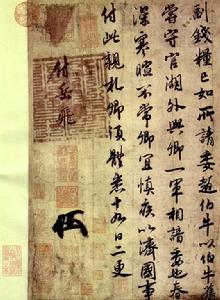 副錢糧已如所請委趙伯牛以伯牛舊
嘗守官湖外與卿一軍相諳委也春
深寒暄不常卿宜慎疾以濟國事
付此親札卿須體悉十九日二更
付岳飛